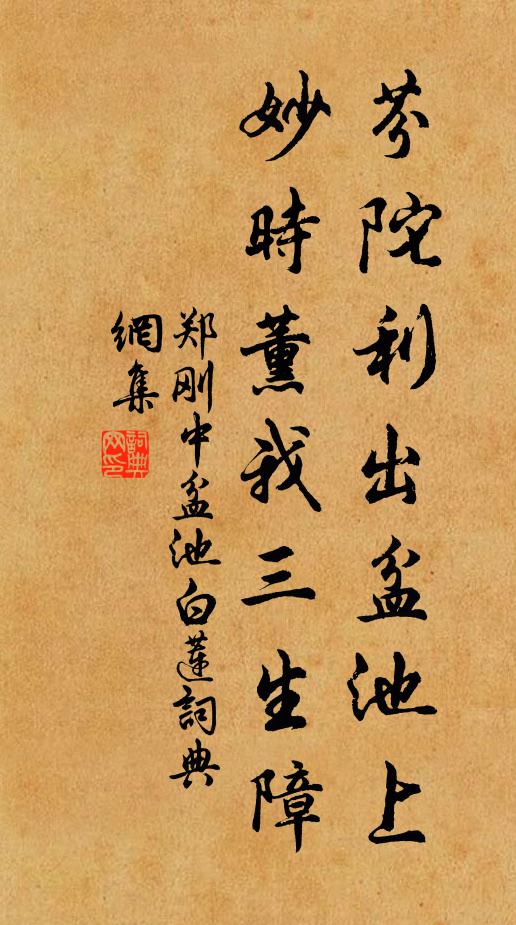 芬陀利出盆池上
妙時薰我三生障
郑刚中盆池白蓮詞典
網集
詞典
网印